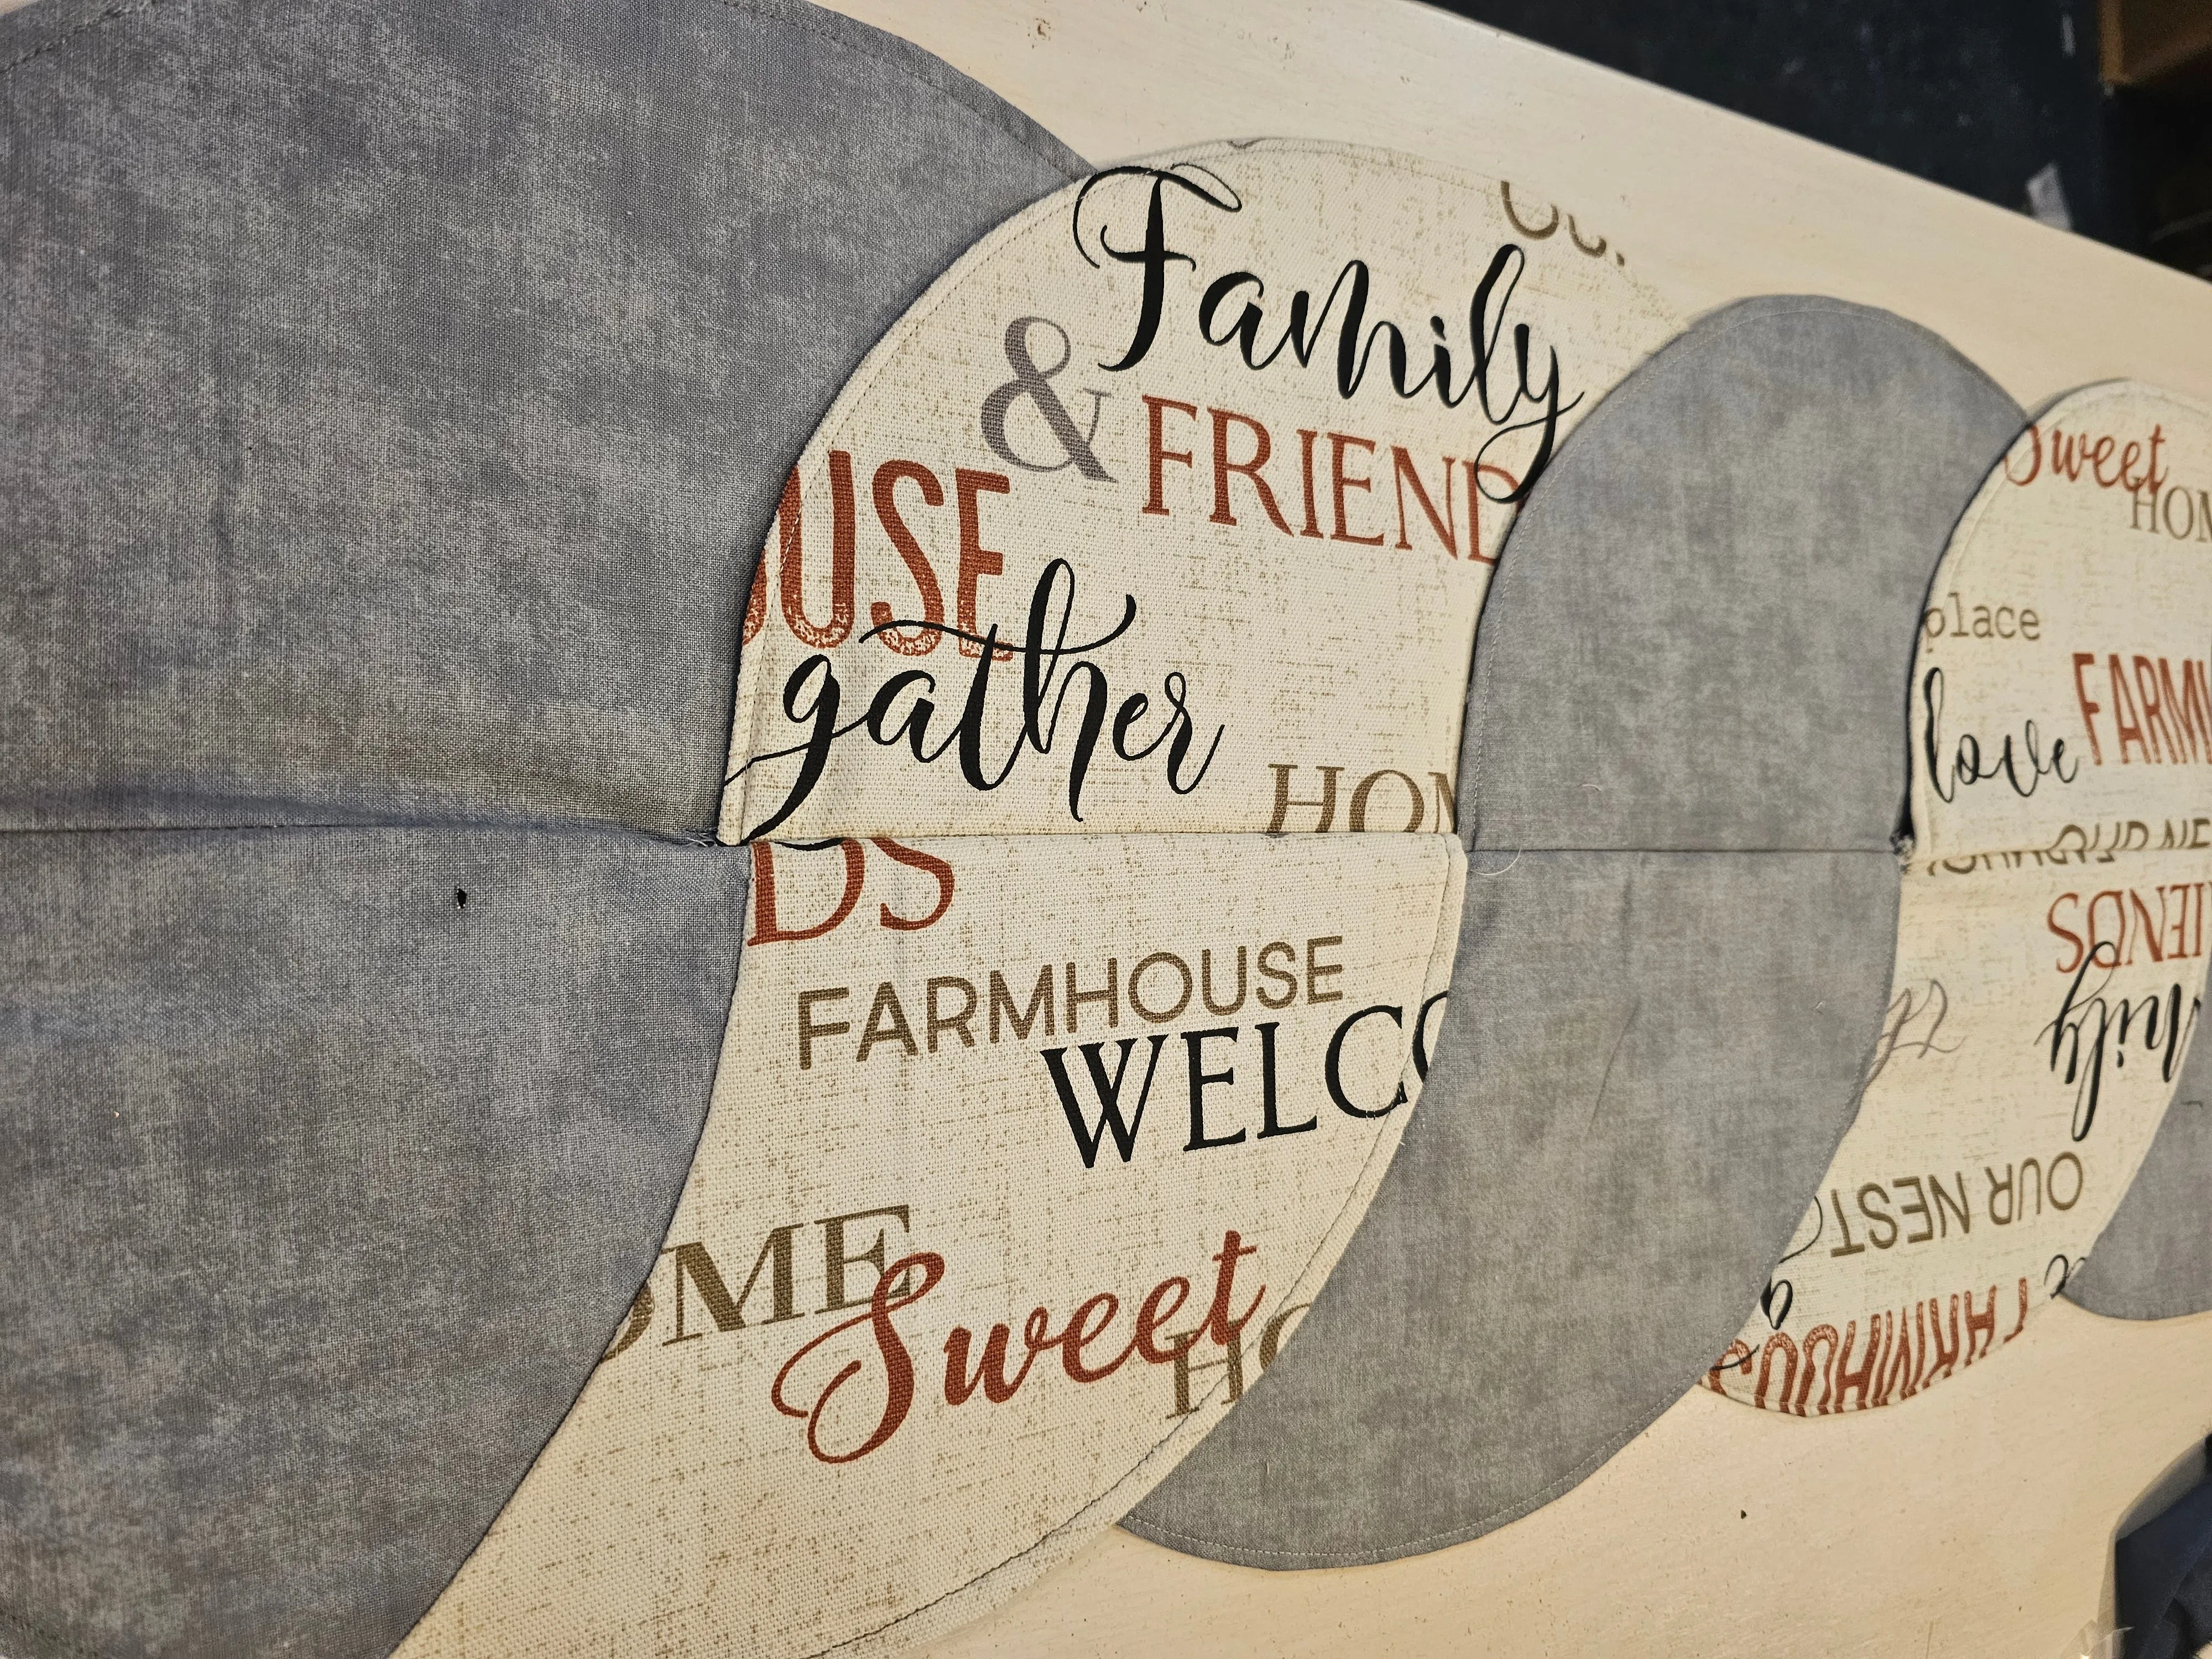 Family
& FRIEND
USE
gather
HOM
DS
FARMHOUSE
WELCO
OME
Sweet
HO
Sweet
HOM
place
love
FARM
OUR NE
IENDS
mily
OUR NEST
FARMHOUS